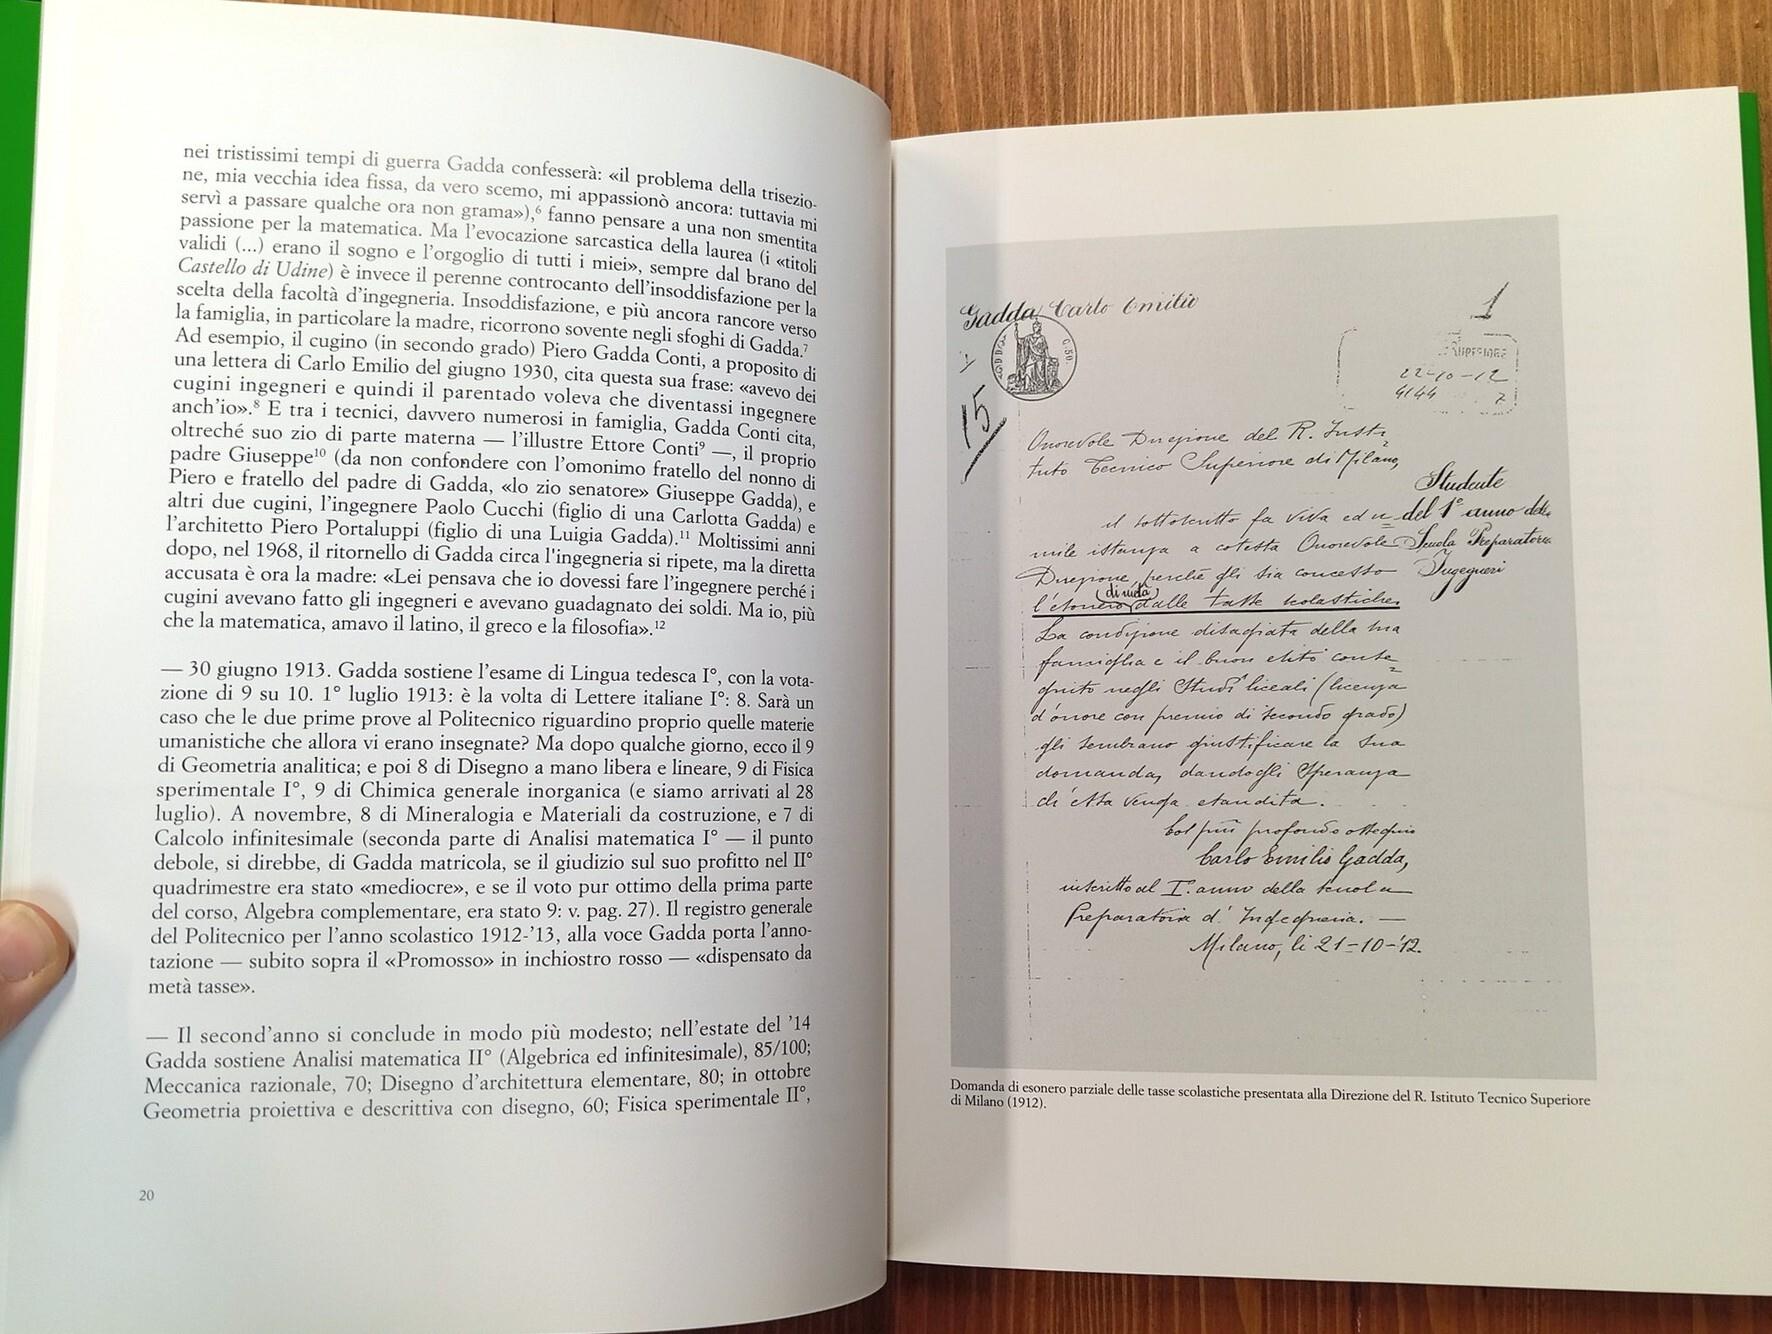 nei tristissimi tempi di guerra Gadda confesserà: «il problema della trisezio-
ne, mia vecchia idea fissa, da vero scemo, mi appassionò ancora: tuttavia mi
servì a passare qualche ora non grama»),⁶ fanno pensare a una non smentita
passione per la matematica. Ma l'evocazione sarcastica della laurea (i «titoli
validi (...) erano il sogno e l'orgoglio di tutti i miei», sempre dal brano del
Castello di Udine) è invece il perenne controcanto dell'insoddisfazione per la
scelta della facoltà d'ingegneria. Insoddisfazione, e più ancora rancore verso
la famiglia, in particolare la madre, ricorrono sovente negli sfoghi di Gadda.⁷
Ad esempio, il cugino (in secondo grado) Piero Gadda Conti, a proposito di
una lettera di Carlo Emilio del giugno 1930, cita questa sua frase: «avevo dei
cugini ingegneri e quindi il parentado voleva che diventassi ingegnere
anch'io».⁸ E tra i tecnici, davvero numerosi in famiglia, Gadda Conti cita,
oltreché suo zio di parte materna — l'illustre Ettore Conti⁹ —, il proprio
padre Giuseppe¹⁰ (da non confondere con l'omonimo fratello del nonno di
Piero e fratello del padre di Gadda, «lo zio senatore» Giuseppe Gadda), e
altri due cugini, l'ingegnere Paolo Cucchi (figlio di una Carlotta Gadda) e
l'architetto Piero Portaluppi (figlio di una Luigia Gadda).¹¹ Moltissimi anni
dopo, nel 1968, il ritornello di Gadda circa l'ingegneria si ripete, ma la diretta
accusata è ora la madre: «Lei pensava che io dovessi fare l'ingegnere perché i
cugini avevano fatto gli ingegneri e avevano guadagnato dei soldi. Ma io, più
che la matematica, amavo il latino, il greco e la filosofia».¹²
— 30 giugno 1913. Gadda sostiene l'esame di Lingua tedesca I°, con la vota-
zione di 9 su 10. 1° luglio 1913: è la volta di Lettere italiane I°: 8. Sarà un
caso che le due prime prove al Politecnico riguardino proprio quelle materie
umanistiche che allora vi erano insegnate? Ma dopo qualche giorno, ecco il 9
di Geometria analitica; e poi 8 di Disegno a mano libera e lineare, 9 di Fisica
sperimentale I°, 9 di Chimica generale inorganica (e siamo arrivati al 28
luglio). A novembre, 8 di Mineralogia e Materiali da costruzione, e 7 di
Calcolo infinitesimale (seconda parte di Analisi matematica I° — il punto
debole, si direbbe, di Gadda matricola, se il giudizio sul suo profitto nel II°
quadrimestre era stato «mediocre», e se il voto pur ottimo della prima parte
del corso, Algebra complementare, era stato 9: v. pag. 27). Il registro generale
del Politecnico per l'anno scolastico 1912-'13, alla voce Gadda porta l'anno-
tazione — subito sopra il «Promosso» in inchiostro rosso — «dispensato da
metà tasse».
— Il second'anno si conclude in modo più modesto; nell'estate del '14
Gadda sostiene Analisi matematica II° (Algebrica ed infinitesimale), 85/100;
Meccanica razionale, 70; Disegno d'architettura elementare, 80; in ottobre
Geometria proiettiva e descrittiva con disegno, 60; Fisica sperimentale II°,
20
Gadda Carlo Emilio
1
C. 50.
SUPERIORE
22-10-12
4144 7
15
Onorevole Direzione del R. Isti-
tuto Tecnico Superiore di Milano,
Studente
del 1° anno della
Scuola Preparatoria
Ingegneri
il sottoscritto fa viva ed u-
mile istanza a cotesta Onorevole
Direzione perchè gli sia concesso
l'esonero dalle tasse scolastiche.
La condizione disagiata della sua
famiglia e il buon esito conse-
guito negli Studi liceali (licenza
d'onore con premio di secondo grado)
gli sembrano giustificare la sua
domanda, dandogli speranza
ch'essa venga esaudita.
Col più profondo ossequio
Carlo Emilio Gadda,
inscritto al I. anno della scuola
Preparatoria d'Ingegneria. —
Milano, li 21-10-'12.
Domanda di esonero parziale delle tasse scolastiche presentata alla Direzione del R. Istituto Tecnico Superiore
di Milano (1912).